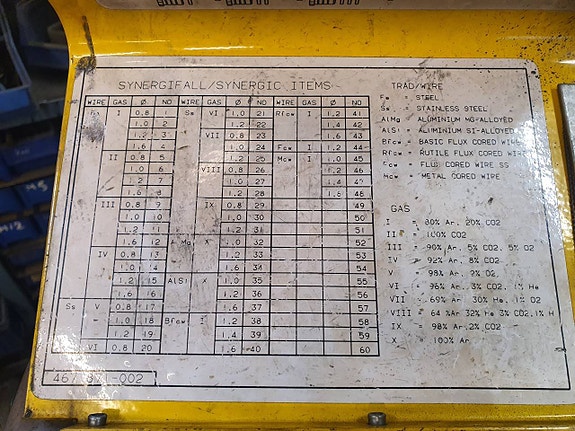 SYNERGIFALL/SYNERGIC ITEMS
WIRE GAS Ø NO WIRE GAS Ø NO WIRE GAS Ø NO
Fe I 0.8 1 Ss VI 1.0 21 Rfcw I 1.2 41
1.0 2 1.2 22 1.4 42
1.2 3 VII 0.8 23 1.6 43
1.6 4 1.0 24 Fcw I 1.2 44
II 0.8 5 1.2 25 Mcw I 1.0 45
1.0 6 VIII 0.8 26 1.2 46
1.2 7 1.0 27 1.4 47
1.6 8 1.2 28 1.6 48
III 0.8 9 IX 29 49
1.0 10 1.0 30 50
1.2 11 1.2 31 51
1.6 12 AlMg X 1.0 32 52
IV 0.8 13 1.2 33 53
1.0 14 1.6 34 54
1.2 15 AlSi X 1.0 35 55
1.6 16 1.2 36 56
Ss V 0.8 17 1.6 37 57
1.0 18 Bfcw I 1.2 38 58
1.2 19 1.4 39 59
VI 0.8 20 1.6 40 60
467 -002
TRAD/WIRE
Fe = STEEL
Ss = STAINLESS STEEL
AlMg = ALUMINIUM MG-ALLOYED
AlSi = ALUMINIUM SI-ALLOYED
Bfcw = BASIC FLUX CORED WIRE
Rfcw = RUTILE FLUX CORED WIRE
Fcw = FLUX CORED WIRE SS
Mcw = METAL CORED WIRE
GAS
I = 80% Ar. 20% CO2
II = 100% CO2
III = 90% Ar. 5% CO2. 5% O2
IV = 92% Ar. 8% CO2
V = 98% Ar. 2% O2
VI = 96% Ar. 3% CO2. 1% He
VII = 69% Ar 30% He. 1% O2
VIII = 64 %Ar 32% He 3% CO2.1% H
IX = 98% Ar.2% CO2
X = 100% Ar